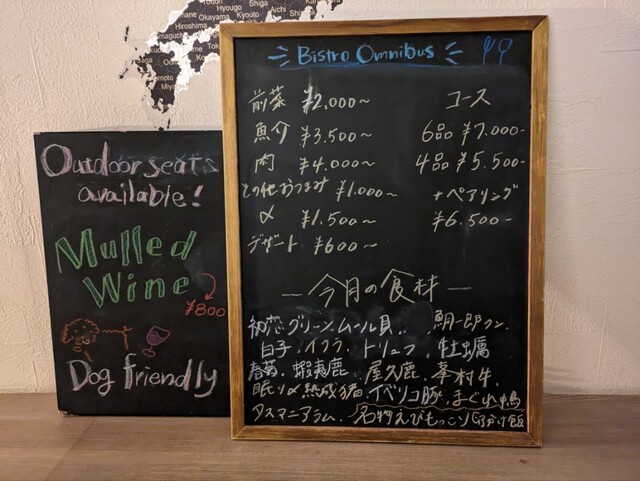 Hyougo
Shiga
Okayama
Kyouto
Hiroshima
Bistro Omnibus
前菜 ¥2,000~
コース
魚介 ¥3,500~
6品 ¥7,000-
肉 ¥4,000~
4品 ¥5,500-
その他おつまみ ¥1,000~
+ペアリング
〆 ¥1,500~
¥6,500-
デザート ¥600~
今月の食材
初恋グリーン、ムール貝、鯛一郎クン、
白子、イクラ、トリュフ、牡蠣
春菊、蝦夷鹿、屋久鹿、峯村牛
眠り〆熟成猪、イベリコ豚、まぐれ鴨
タスマニアラム、名物えびもっこり取分け飯
Outdoor seats
available!
Mulled
Wine
¥800
Dog friendly